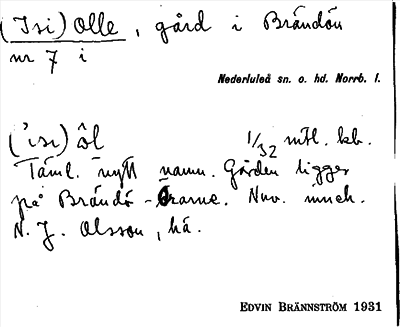 (Isi) Olle, gård i Brändön
nr 7 i
Nederluleå sn. o. hd. Norrb. l.
('isi) ôl 1/32 mtl. kb.
Täml. nytt namn. Gården ligger
på Brändö-Örarne. Nuv. inneh.
N. J. Olsson, hä.
EDVIN BRÄNNSTRÖM 1931